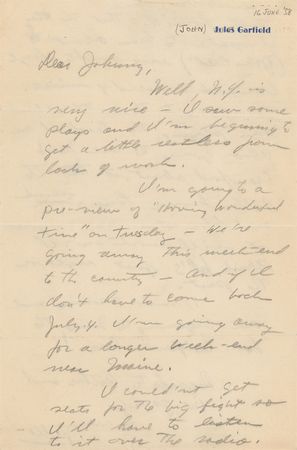 16 JUNE '38
(JOHN) Jules Garfield
Dear Johnny,
Well, N.Y. is
very nice – I saw some
plays and I'm beginning to
get a little restless from
lack of work.
I'm going to a
pre-view of "Having Wonderful
time" on Tuesday – We're
going away this week-end
to the country – And if I
don't have to come back
July 4. I'm going away
for a longer week-end
near Maine.
I couldn't get
seats for the big fight so
I'll have to listen
to it over the radio.